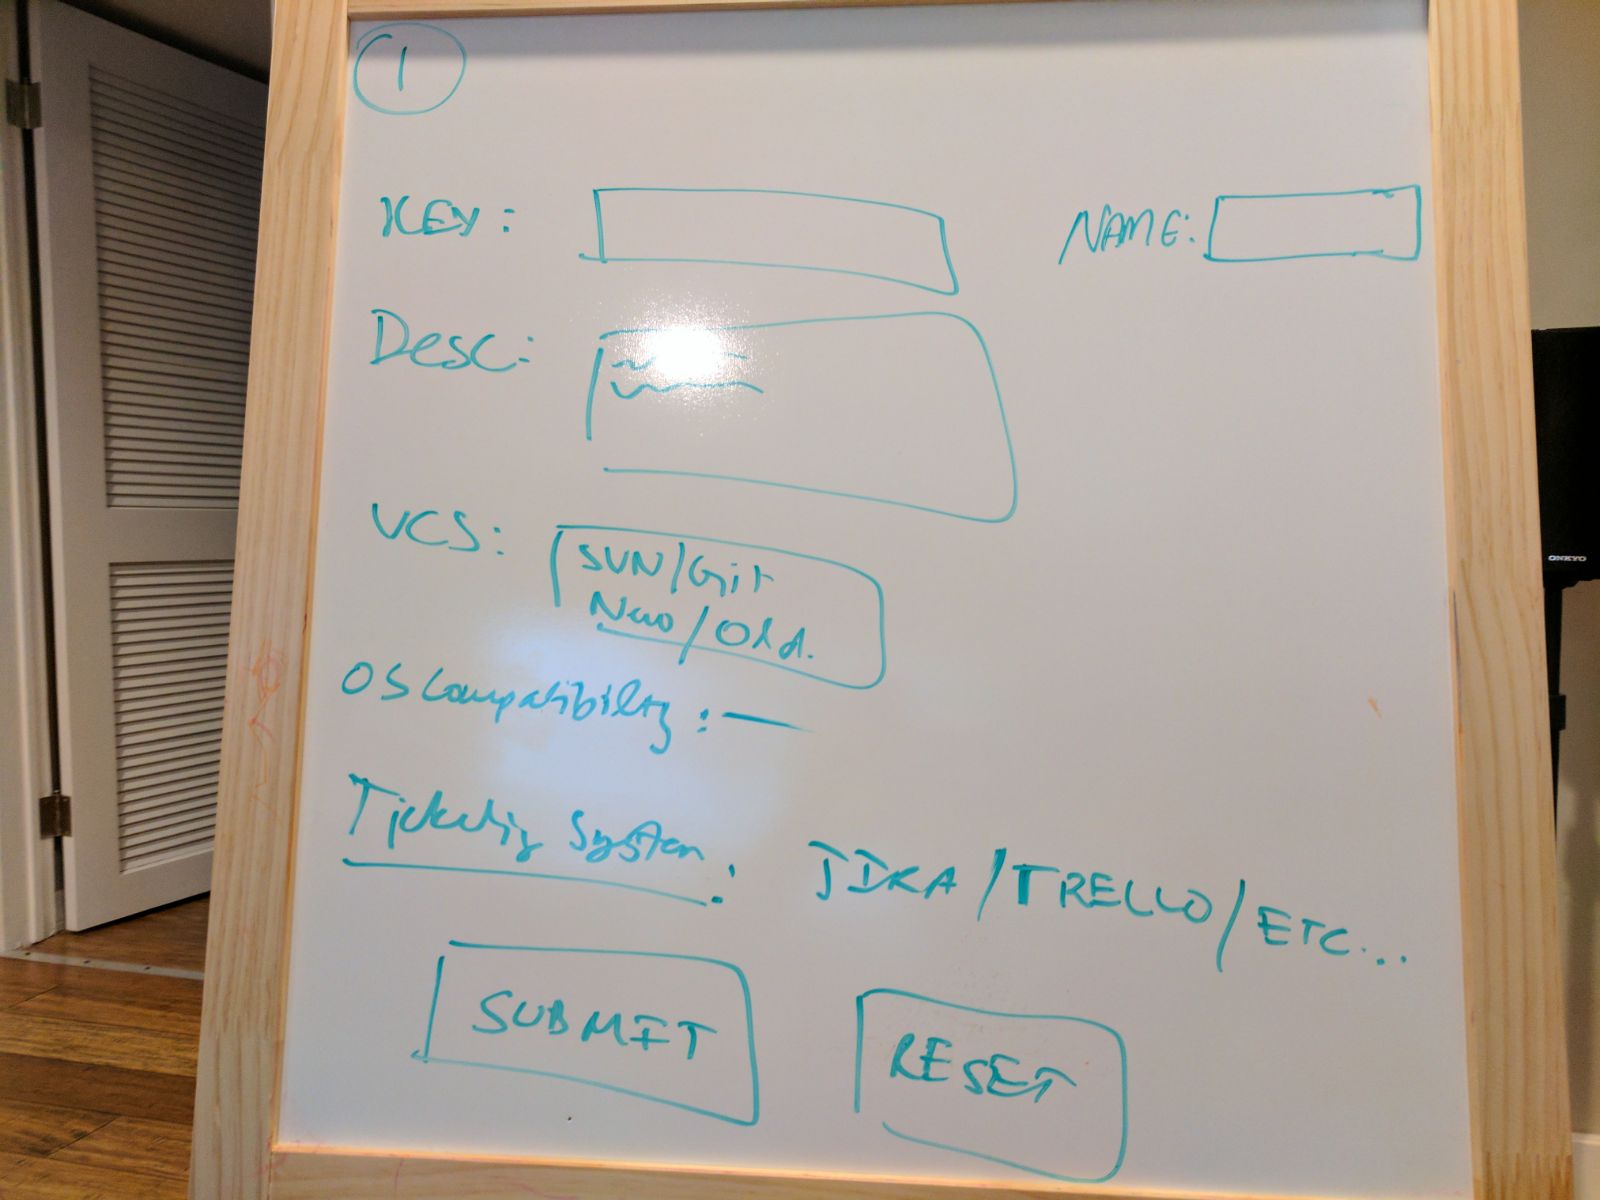 1
KEY: NAME:
Desc:
VCS: SVN/Git
New/Old.
OS Compatibility: —
Ticketing System: JIRA/TRELLO/ETC...
SUBMIT RESET
ONKYO